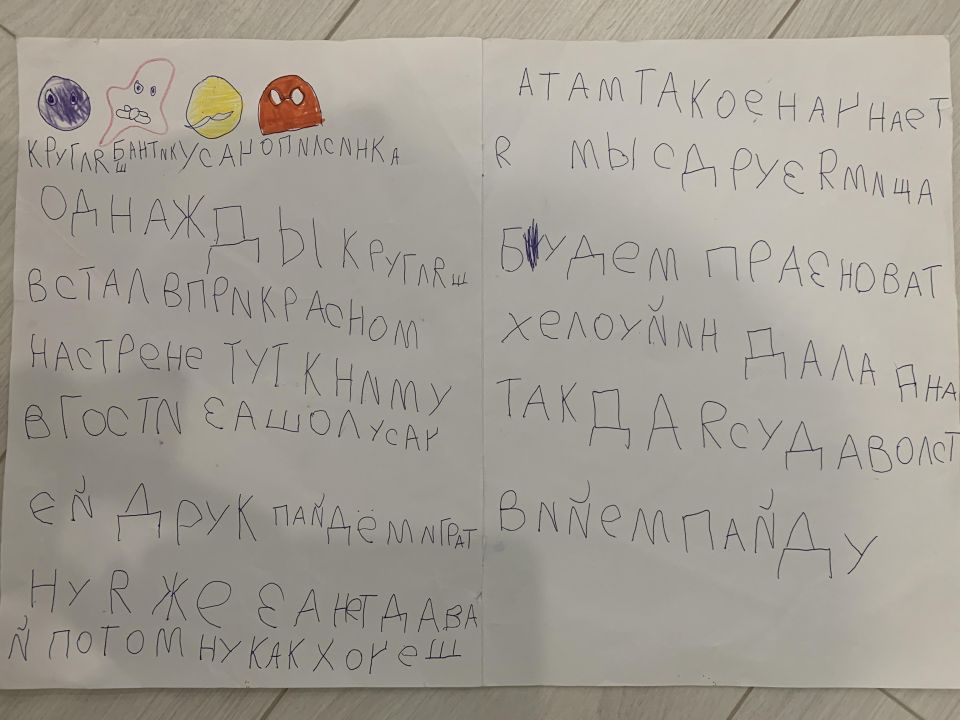 КРУГЛЯШ БАНТИК УСАЧ ОПИЛСИНКА
ОДНАЖДЫ КРУГЛЯШ
ВСТАЛ В ПРИКРАСНОМ
НАСТРЕНЕ ТУТ К НИМУ
В ГОСТИ ЗАШОЛ УСАЧ
ЭЙ ДРУК ПАЙДЁМ ИГРАТ
НУ Я ЖЕ ЗАНЕТ ДАВА
Й ПОТОМ НУ КАК ХОЧЕШ
А ТАМ ТАКОЕ НАЧНАЕТ
Я МЫ С ДРУЗЯМИ ЩА
БУДЕМ ПРАЗНОВАТ
ХЕЛОУЙИН ДАЛА АНА
ТАК ДА Я С УДАВОЛСТ
ВИЙЕМ ПАЙДУ